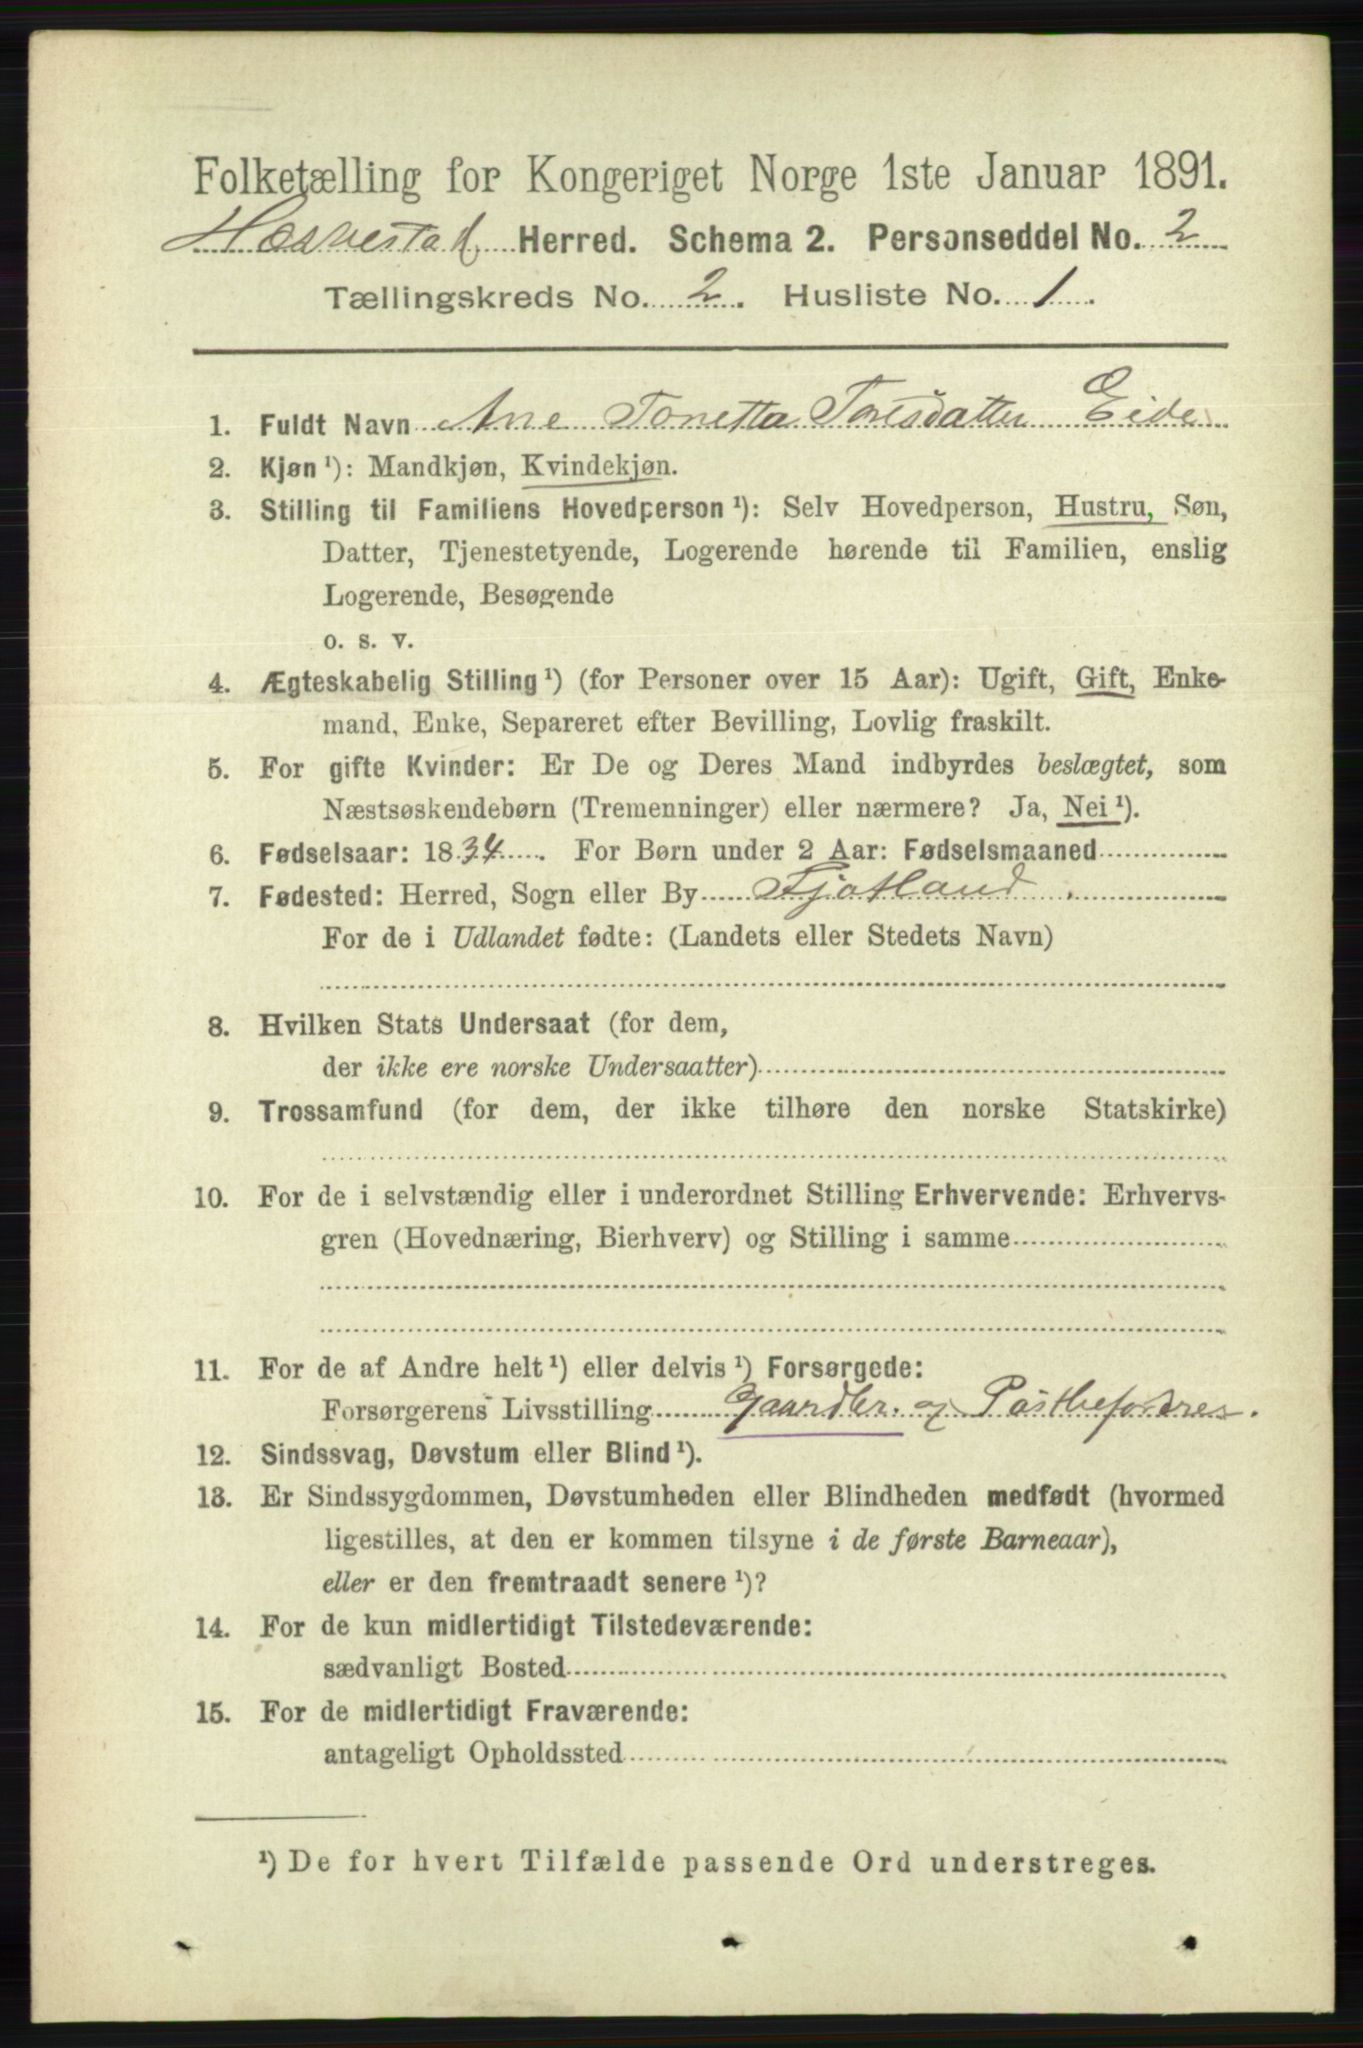 Folketælling for Kongeriget Norge 1ste Januar 1891.
Hægbestad Herred. Schema 2. Personseddel No. 2
Tællingskreds No. 2. Husliste No. 1.
1. Fuldt Navn Ane Tonetta Toresdatter Eide
2. Kjøn ¹): Mandkjøn, Kvindekjøn.
3. Stilling til Familiens Hovedperson ¹): Selv Hovedperson, Hustru, Søn,
Datter, Tjenestetyende, Logerende hørende til Familien, enslig
Logerende, Besøgende
o. s. v.
4. Ægteskabelig Stilling ¹) (for Personer over 15 Aar): Ugift, Gift, Enke-
mand, Enke, Separeret efter Bevilling, Lovlig fraskilt.
5. For gifte Kvinder: Er De og Deres Mand indbyrdes beslægtet, som
Næstsøskendebørn (Tremenninger) eller nærmere? Ja, Nei ¹).
6. Fødselsaar: 1834. For Børn under 2 Aar: Fødselsmaaned
7. Fødested: Herred, Sogn eller By Fjotland.
For de i Udlandet fødte: (Landets eller Stedets Navn)
8. Hvilken Stats Undersaat (for dem,
der ikke ere norske Undersaatter)
9. Trossamfund (for dem, der ikke tilhøre den norske Statskirke)
10. For de i selvstændig eller i underordnet Stilling Erhvervende: Erhvervs-
gren (Hovednæring, Bierhverv) og Stilling i samme
11. For de af Andre helt ¹) eller delvis ¹) Forsørgede:
Forsørgerens Livsstilling Gaardbr. og Postbefordrer.
12. Sindssvag, Døvstum eller Blind ¹).
13. Er Sindssygdommen, Døvstumheden eller Blindheden medfødt (hvormed
ligestilles, at den er kommen tilsyne i de første Barneaar),
eller er den fremtraadt senere ¹)?
14. For de kun midlertidigt Tilstedeværende:
sædvanligt Bosted
15. For de midlertidigt Fraværende:
antageligt Opholdssted
¹) De for hvert Tilfælde passende Ord understreges.